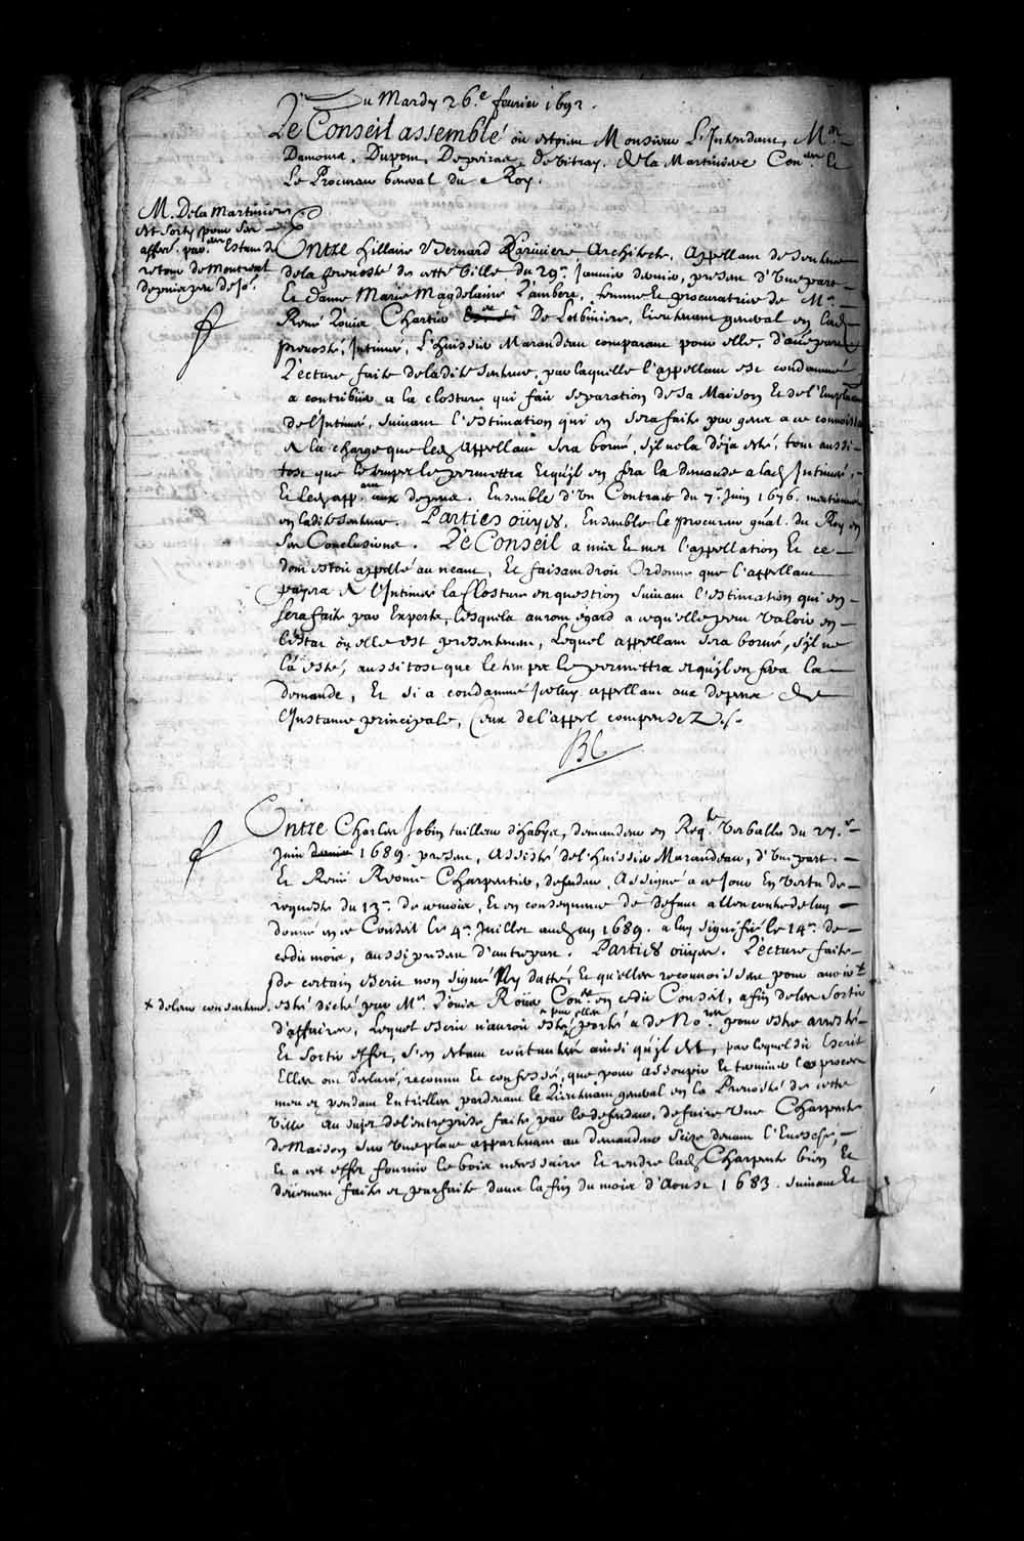 Du Mardy 26.e fevrier 1692.
Le Conseil assemblé où estoient Monsieur L'Intendant, Mrs
Damours, Dupont, Depeiras, deVitray, & dela Martiniere Con.ers Et
Le Procureur General du Roy.
M. Dela Martiniere
est sorty pour ses
affres. Estant de
retour de Montreal
Entre hillaire Bernard Lariviere Architecte, Appellant de Sentence
dela prevosté de cette Ville du 29.e Janvier dernier, present d'Une part
Et dame Marie Magdelaine Lambert, femme Et procuratrice de Mr
René Louis Chartier De Lotbiniere, lieutenant general en lad.
prevosté, Intimée, L'huissier Marandeau comparant pour elle, d'autre part
Lecture faite deladite sentence, par laquelle l'appellant est condamné
a contribuer a la closture qui fait separation de sa Maison Et de l'Emplacement
de l'Intimée, suivant l'estimation qui en sera faite par gens a ce connoissans
& la charge que led. Appellant sera borné, s'il ne la déja esté, tout aussi
tost que le temps le permettra Et qu'il en fera la demande a lad. Intimée,
Et led. app.ant aux depens. Ensemble d'Un Contract du 7.e Juin 1676. mentionné
en ladite sentence. Parties oüyes, Ensemble le procureur gñal. du Roy en
ses Conclusions. Le Conseil a mis Et met l'appellation Et ce
dont estoit appellé au neant, Et faisant droit Ordonne que l'appellant
payera à l'Intimée la Closture en question suivant l'estimation qui en
sera faite par Experts, lesquels auront égard a ce qu'elle peut valoir en
l'estat où elle est presentement, Lequel appellant sera borné, s'il ne
la esté, aussi tost que le temps le permettra et qu'il en fera la
demande, Et si a condamné iceluy appellant aux depens de
l'Instance principale, Ceux de l'appel compensez./.
BC
Entre Charles Jobin tailleur d'habits, demandeur en Req.te verballe du 27.e
Juin 1689. present, Assisté de l'huissier Marandeau, d'Une part.
Et René Charpentier, defendeur, Assigné a ce jour En vertu de
requeste du 13.e de ce mois, Et en consequence de defaut allencontre de luy
donné en ce Conseil le 4.e Juillet aud. an 1689. a luy signifié le 14.e de
cedit mois, aussi present d'autre part. Parties ouyes. Lecture faite
de certain escrit non signé Ny datté, Et qu'elles reconnoissent pour avoir
x deleur consentement, esté dicté par Mr. Louis Roüer Con.er en cedit Conseil, afin de les sortir
d'affaires, Lequel escrit n'auroit esté par elles porté a de No.res pour estre arresté
Et sortir effet, s'en estant contentées ainsi qu'il est, par lequel dit Escrit
Elles ont declaré, reconnu Et confessé, que pour assoupir Et terminer les procez
meu et pendant Entr'elles pardevant le Lieutenant general en la Prevosté de cette
Ville au sujet de l'entreprise faite par le defendeur, de faire Une Charpente
de Maison sur Une place appartenant au demandeur Scize devant l'Evesché,
Et a cet effet fournir le bois necessaire Et rendre lad. Charpente bien Et
deüement faite et parfaite dans la fin du mois d'Aoust 1683. suivant Et